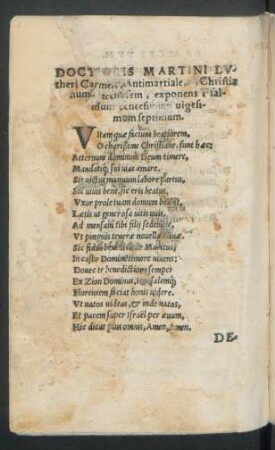 DOCTORIS MARTINI LV
theri Carmen Antimartiale, Christia
num exponens Psal-
mum centesimum vigesi-
mum septimum.
VItam quæ faciunt beatiorem,
O charissime Christiane, sunt hæc:
Aeternum dominum Deum timere,
Mandatiq; sui vias amare.
Sic victus manuum labore partus,
Sic vivis bene, sic eris beatus.
Vxor prole tuam domum
Lætis ut generosa vitis uvis.
Ad mensam tibi filij sedebunt,
Vt pinguis teneræ novella
Sic fidus Maritus,
In casto Domini timore vivens:
Donec te benedictione semper
Ex Zion Dominus, Ierusalemq;
Florentem faciat bonis videre.
Vt natos videas, & inde natos,
Et pacem super Israël per ævum,
Hic dicat pius omnis, Amen, Amen.
DE-